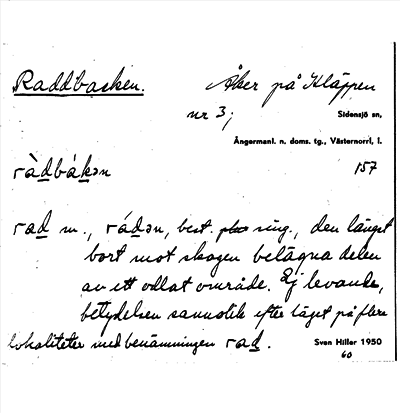 Raddbacken. Åker på Kläppen
nr 3; Sidensjö sn,
Ångermanl. n. doms. tg., Västernorrl. l.
ràd̲bák̲ən 157
rad̲ m., rád̲ən, best. sing., den längst
bort mot skogen belägna delen
av ett odlat område. Ej levande,
betydelsen sannolik efter läget på flere
lokaliteter med benämningen rad̲.
Sven Hiller 1950
60